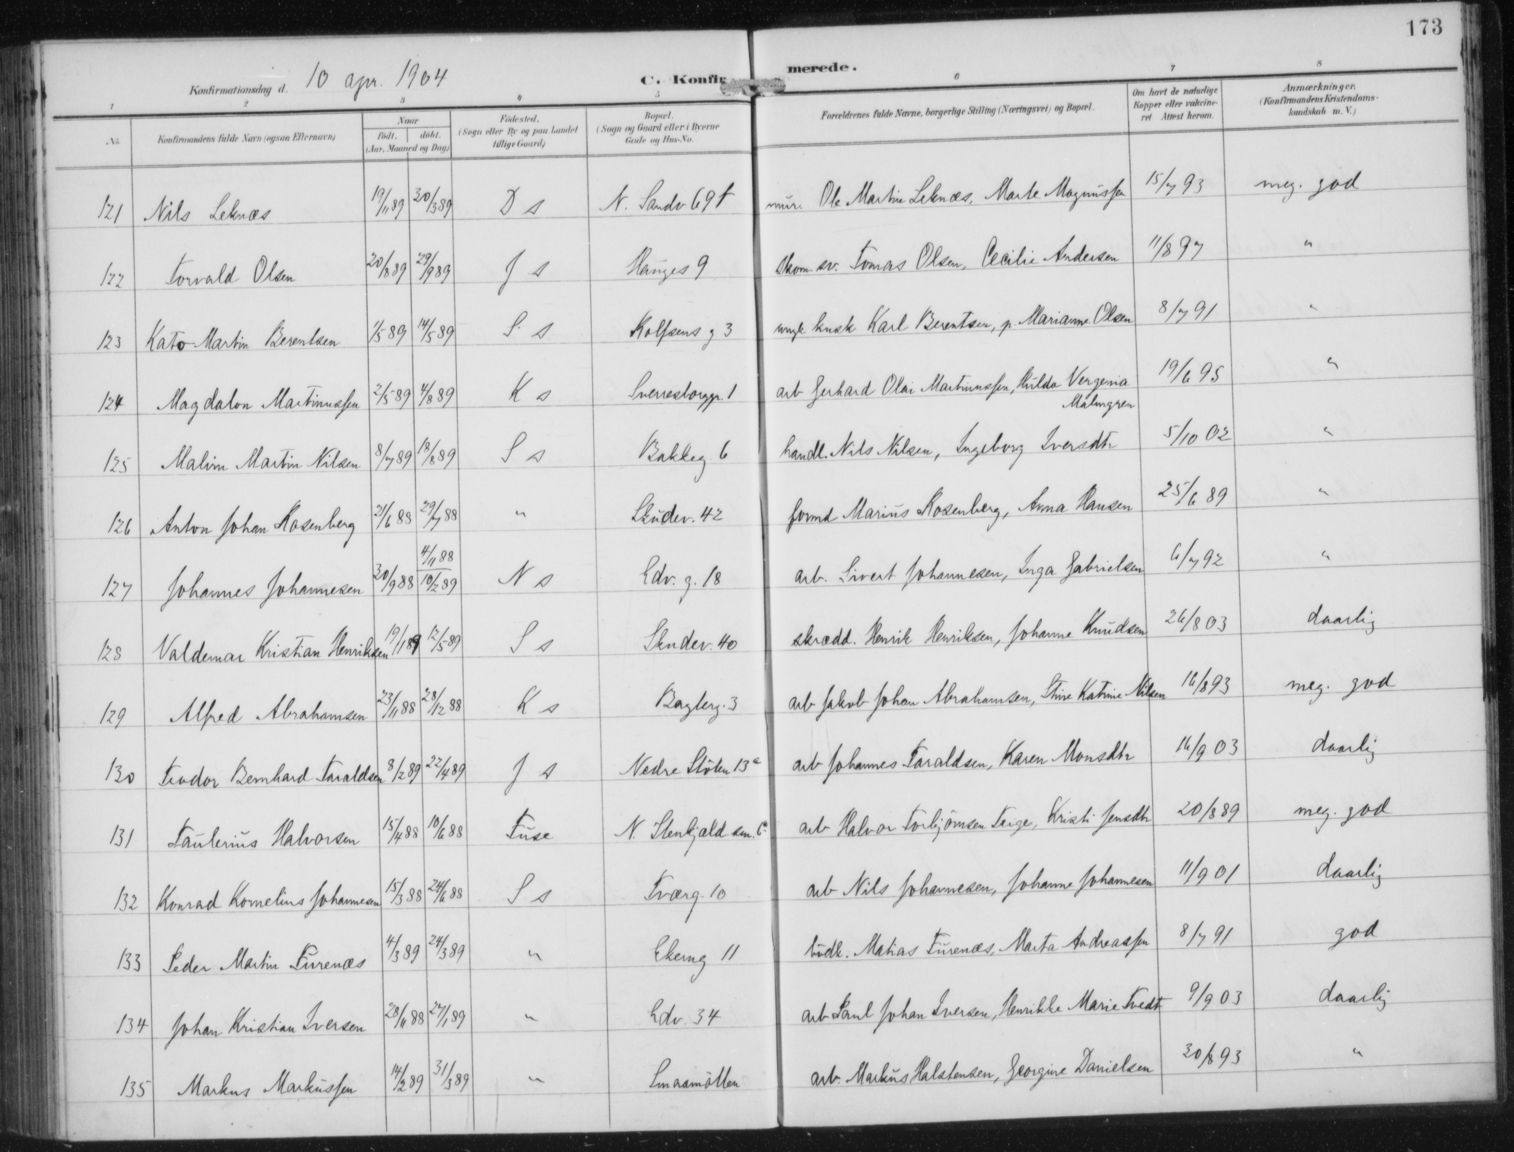 173
Konfirmationsdag d. 10 apr. 1904 C. Konfirmerede.
1 2 3 4 5 6 7 8
No. Konfirmandens fulde Navn (ogsaa Efternavn) Naar født. døbt. (Aar, Maaned og Dag) Fødested. (Sogn eller By og paa Landet tillige Gaard) Bopæl. (Sogn og Gaard eller i Byerne Gade og Hus-No. Forældrenes fulde Navne, borgerlige Stilling (Næringsvei) og Bopæl. Om havt de naturlige Kopper eller vaccineret Attest herom. Anmærkninger. (Konfirmandens Kristendomskundskab m. V.)
121 Nils Leknæs 19/11 89 30/3 89 D s N. Sandv 69 mur. Ole Martin Leknæs, Marte Magnussen 15/7 93 meg. god
122 Torvald Olsen 20/8 89 29/9 89 J s Hauges 9 skom. sv. Tomas Olsen, Cecilie Andersen 11/8 97 "
123 Kato Martin Berentsen 7/5 89 14/5 89 S s Rolfsens g 3 kusk Karl Berentsen, p. Marianne Olsen 8/7 91 "
124 Magdalon Martinussen 2/5 89 4/8 89 K s Sverresborgg. 1 arb Gerhard Olai Martinussen, Hulda Vergenia Malmgren 19/6 95 "
125 Malvin Martin Nilsen 8/7 89 18/8 89 S s Bakkeg 6 handl. Nils Nilsen, Ingeborg Iversdtr 5/10 02 "
126 Anton Johan Rosenberg 21/6 88 29/7 88 " Skudev. 42 formd Marius Rosenberg, Anna Hansen 25/6 89 "
127 Johannes Johannesen 30/9 88 4/11 88 10/2 89 N s Edv. g. 18 arb. Sivert Johannesen, Inga Gabrielsen 6/7 92 "
128 Valdemar Kristian Henriksen 19/1 89 12/5 89 S s Skudev. 40 skrædd. Henrik Henriksen, Johanne Knudsen 26/8 03 daarlig
129 Alfred Abrahamsen 23/11 88 28/12 88 K s Baglerg. 3 arb Jakob Johan Abrahamsen, Stine Katrine Nilsen 16/8 93 meg. god
130 Teodor Bernhard Taraldsen 8/2 89 22/4 89 J s Nedre Stölen 13 a arb Johannes Taraldsen, Karen Monsdtr 16/9 03 daarlig
131 Paulerius Halvorsen 15/4 88 10/6 88 Fuse N Stenkjeld sm. 6 arb Halvor Torbjörnsen Teige, Kristi Jensdtr 20/8 89 meg. god
132 Konrad Kornelius Johannesen 15/3 88 24/6 88 S s Tværg. 10 arb Nils Johannesen, Johanne Johannesen 11/9 01 daarlig
133 Peder Martin Furenæs 4/3 89 24/3 89 " Ekerng 11 budb. Matias Furenæs, Marta Andreassen 8/7 91 god
134 Johan Kristian Iversen 28/11 88 27/1 89 " Edv. 34 arb Paul Johan Iversen, Henrikke Marie Tvedt 9/9 03 daarlig
135 Markus Markussen 14/2 89 31/3 89 " Smaamöllen arb. Markus Halstensen, Georgine Danielsen 30/8 93 "